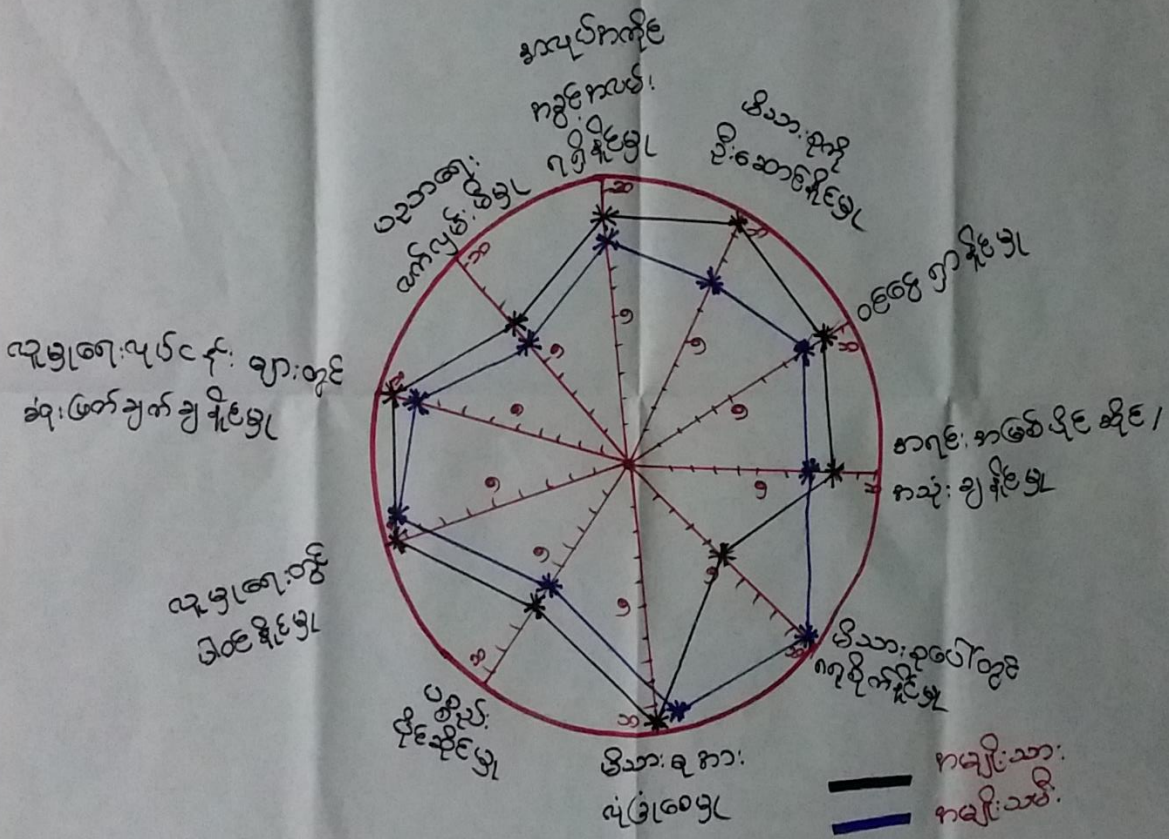 အလုပ်အကိုင်
အခွင့်အလမ်း
ရရှိနိုင်မှု
မိသားစုကို
ဦးဆောင်နိုင်မှု
ဝင်ငွေ ရှာနိုင်မှု
အရင်းအမြစ်ပိုင်ဆိုင်/
အသုံးချနိုင်မှု
မိသားစုပေါ်တွင်
ဂရုစိုက်နိုင်မှု
မိသားစုအား
လုံခြုံစေမှု
ပစ္စည်း
ပိုင်ဆိုင်မှု
လူမှုရေးတွင်
ပါဝင်နိုင်မှု
လူမှုရေးလုပ်ငန်းများတွင်
ဆုံးဖြတ်ချက်ချနိုင်မှု
ပညာရေး
လက်လှမ်းမီမှု
၅
၅
၅
၅
၅
၅
၅
၅
၅
၅
၁၀
၁၀
၁၀
၁၀
၁၀
၁၀
၁၀
အမျိုးသား
အမျိုးသမီး